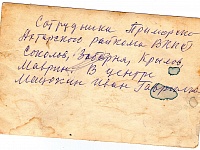 Сотрудники Приморско-
Ахтарского райкома ВКПб
Соколов, Заварзин, Крылов
Матрин. В центре
Мацокин Иван Гаврилов